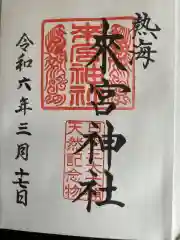 熱海
來宮神社
天然記念物
令和六年三月十七日